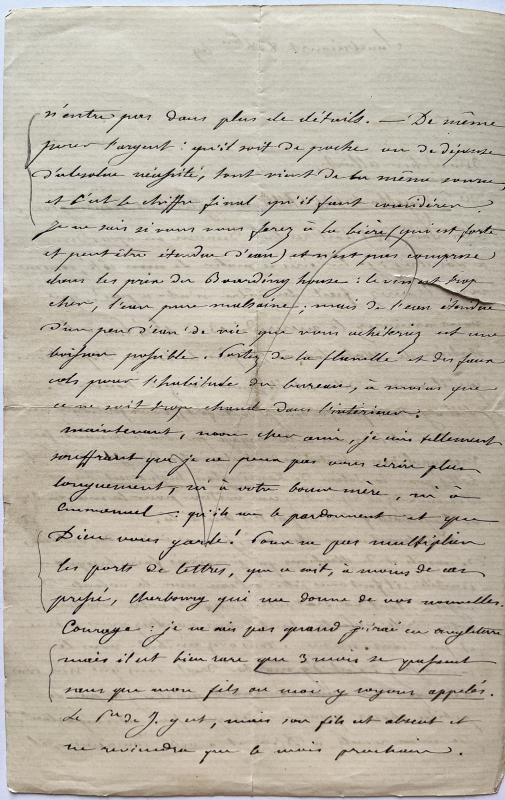 n'entre pas dans plus de détails. — De même
pour l'argent : qu'il soit de poche ou de dépense
d'absolue nécessité, tout vient de la même source,
et c'est le chiffre final qu'il faut considérer.
Je ne sais si vous vous ferez à la bière (qui est forte
et peut être étendue d'eau) et n'est pas comprise
dans les prix du Boarding house : le vin est trop
cher, l'eau pure malsaine ; mais de l'eau étendue
d'un peu d'eau de vie que vous achèteriez est une
boisson possible. Portez de la flanelle et des faux
cols pour l'habitude du bureau, à moins que
ce ne soit trop chaud dans l'intérieur :
maintenant, mon cher ami, je suis tellement
souffrant que je ne peux pas vous écrire plus
longuement, ni à votre bonne mère, ni à
Emmanuel : qu'ils me le pardonnent et que
Dieu vous garde ! Pour ne pas multiplier
les ports de lettres, que ce soit, à moins de cas
pressé, Cherbourg qui me donne de vos nouvelles.
Courage : je ne sais pas quand j'irai en Angleterre
mais il est bien rare que 3 mois se passent
sans que mon fils ou moi y soyons appelés.
Le de J. y est, mais son fils est absent et
ne reviendra que le mois prochain.